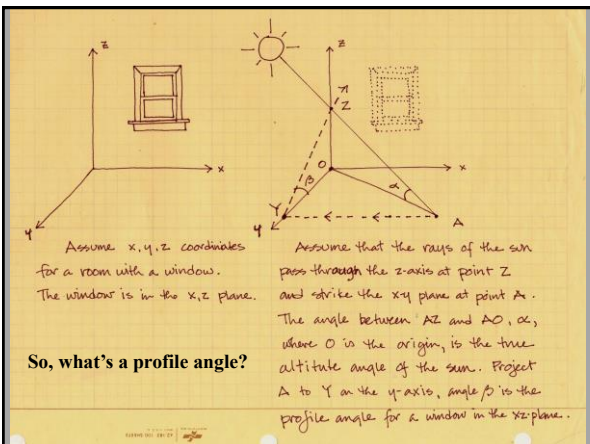 z
x
y
Assume x, y, z coordinates
for a room with a window.
The window is in the x, z plane.
So, what's a profile angle?
z
Z
O
x
β
α
Y
y
A
Assume that the rays of the sun
pass through the z-axis at point Z
and strike the x-y plane at point A.
The angle between AZ and AO, α,
where O is the origin, is the true
altitute angle of the sun. Project
A to Y on the y-axis, angle β is the
profile angle for a window in the xz-plane.